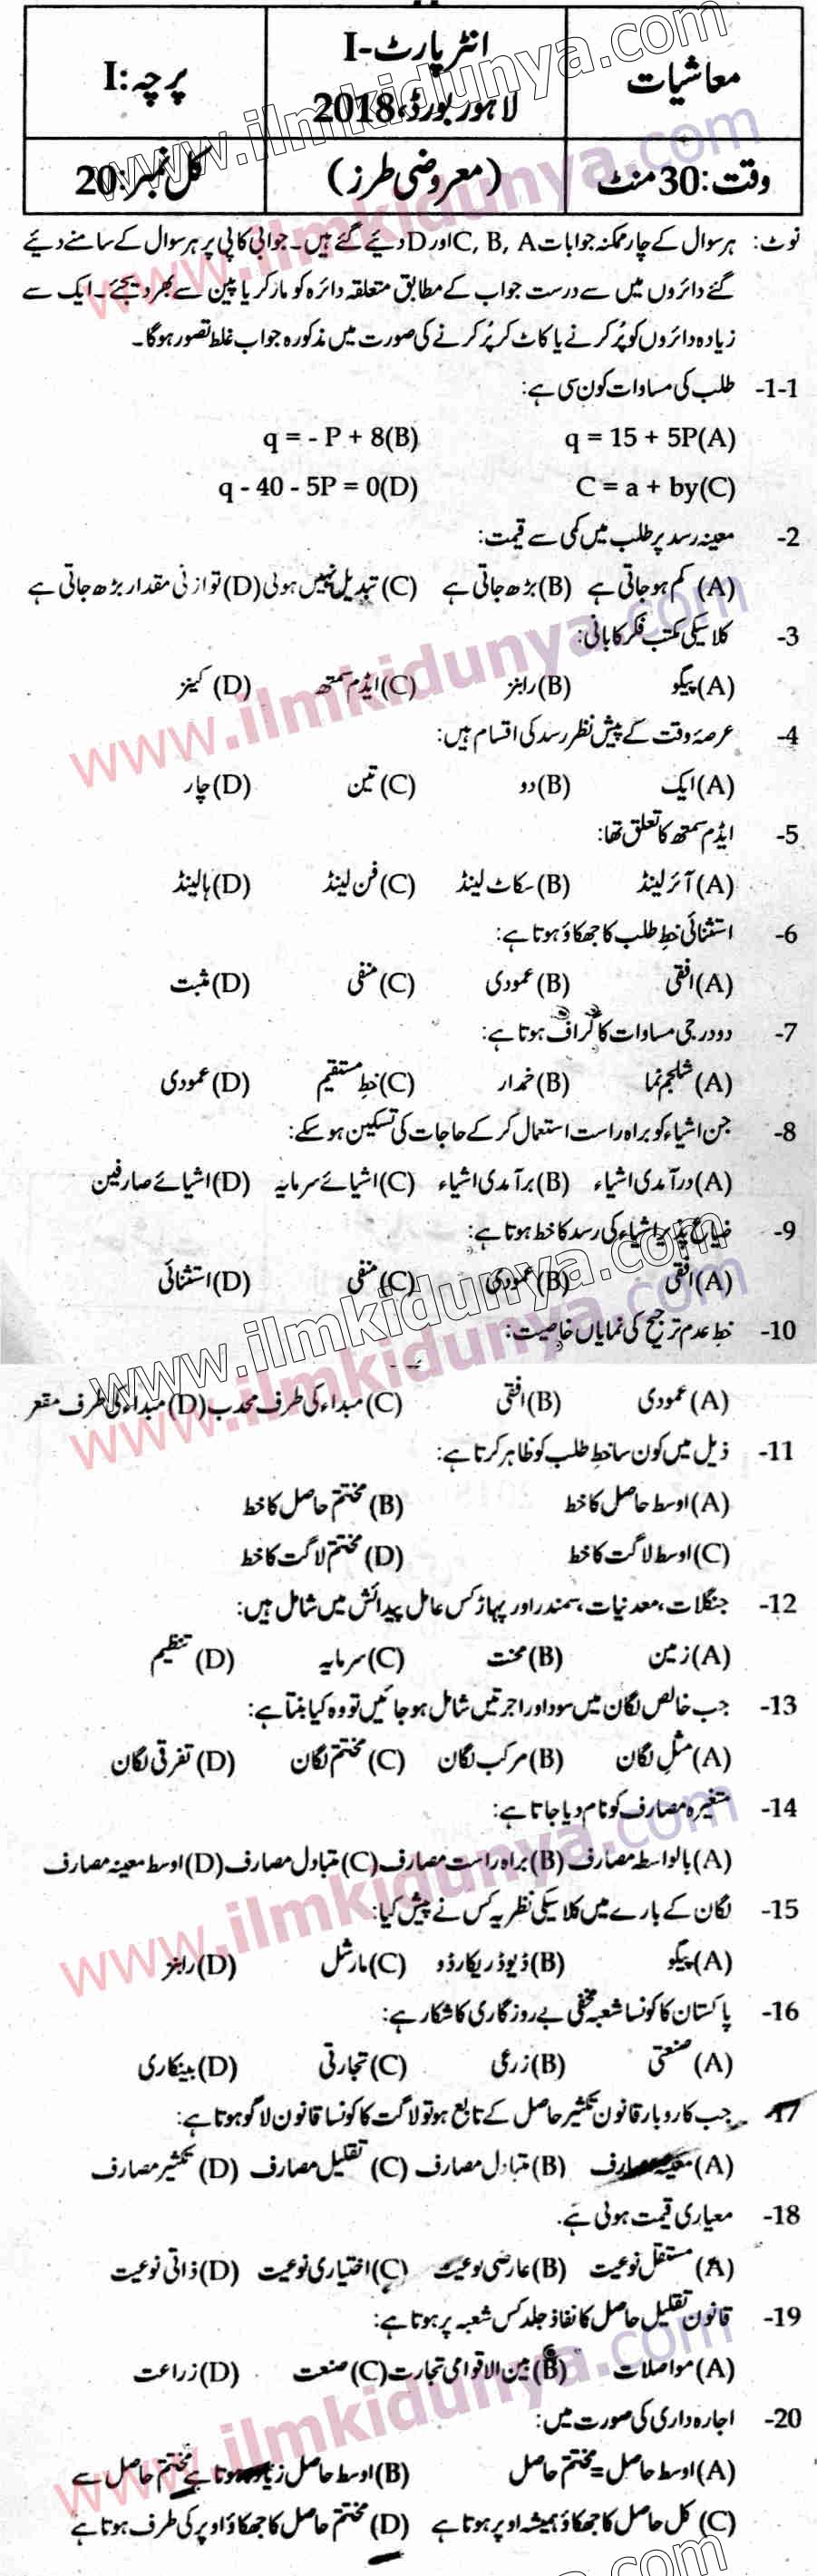 معاشیات
انٹر پارٹ-I
لاہور بورڈ، 2018
پرچہ: I
وقت: 30 منٹ
(معروضی طرز)
کل نمبر: 20
نوٹ: ہر سوال کے چار ممکنہ جوابات C, B, A اور D دیئے گئے ہیں۔ جوابی کاپی پر ہر سوال کے سامنے دیئے
گئے دائروں میں سے درست جواب کے مطابق متعلقہ دائرہ کو مارکر یا پین سے بھر دیجئے۔ ایک سے
زیادہ دائروں کو پُر کرنے یا کاٹ کر پُر کرنے کی صورت میں مذکورہ جواب غلط تصور ہوگا۔
1-1- طلب کی مساوات کون سی ہے:
(A) q = 15 + 5P (B) q = - P + 8
(C) C = a + by (D) q - 40 - 5P = 0
2- معینہ رسد پر طلب میں کمی سے قیمت:
(A) کم ہو جاتی ہے (B) بڑھ جاتی ہے (C) تبدیل نہیں ہوتی (D) توازنی مقدار بڑھ جاتی ہے
3- کلاسیکی مکتب فکر کا بانی:
(A) پیگو (B) رابنز (C) ایڈم سمتھ (D) کینز
4- عرصۂ وقت کے پیش نظر رسد کی اقسام ہیں:
(A) ایک (B) دو (C) تین (D) چار
5- ایڈم سمتھ کا تعلق تھا:
(A) آئرلینڈ (B) سکاٹ لینڈ (C) فن لینڈ (D) ہالینڈ
6- استثنائی خطِ طلب کا جھکاؤ ہوتا ہے:
(A) افقی (B) عمودی (C) منفی (D) مثبت
7- دو درجی مساوات کا گراف ہوتا ہے:
(A) شلجم نما (B) خمدار (C) خطِ مستقیم (D) عمودی
8- جن اشیاء کو براہ راست استعمال کر کے حاجات کی تسکین ہو سکے:
(A) درآمدی اشیاء (B) برآمدی اشیاء (C) اشیائے سرمایہ (D) اشیائے صارفین
9- ضیاع پذیر اشیاء کی رسد کا خط ہوتا ہے:
(A) افقی (B) عمودی (C) منفی (D) استثنائی
10- خطِ عدم ترجیح کی نمایاں خاصیت:
(A) عمودی (B) افقی (C) مبداء کی طرف محدب (D) مبداء کی طرف مقعر
11- ذیل میں کون سا خطِ طلب کو ظاہر کرتا ہے:
(A) اوسط حاصل کا خط (B) مختتم حاصل کا خط
(C) اوسط لاگت کا خط (D) مختتم لاگت کا خط
12- جنگلات، معدنیات، سمندر اور پہاڑ کس عامل پیدائش میں شامل ہیں:
(A) زمین (B) محنت (C) سرمایہ (D) تنظیم
13- جب خالص لگان میں سود اور اجرتیں شامل ہو جائیں تو وہ کیا بنتا ہے:
(A) مثلِ لگان (B) مرکب لگان (C) مختتم لگان (D) تفرقی لگان
14- متغیرہ مصارف کو نام دیا جاتا ہے:
(A) بالواسطہ مصارف (B) براہ راست مصارف (C) متبادل مصارف (D) اوسط معینہ مصارف
15- لگان کے بارے میں کلاسیکی نظریہ کس نے پیش کیا:
(A) پیگو (B) ڈیوڈ ریکارڈو (C) مارشل (D) رابنز
16- پاکستان کا کونسا شعبہ مخفی بے روزگاری کا شکار ہے:
(A) صنعتی (B) زرعی (C) تجارتی (D) بینکاری
17- جب کاروبار قانون تکثیر حاصل کے تابع ہو تو لاگت کا کونسا قانون لاگو ہوتا ہے:
(A) معینہ مصارف (B) متبادل مصارف (C) تقلیل مصارف (D) تکثیر مصارف
18- معیاری قیمت ہوتی ہے۔
(A) مستقل نوعیت (B) عارضی نوعیت (C) اختیاری نوعیت (D) ذاتی نوعیت
19- قانون تقلیل حاصل کا نفاذ جلد کس شعبہ پر ہوتا ہے:
(A) مواصلات (B) بین الاقوامی تجارت (C) صنعت (D) زراعت
20- اجارہ داری کی صورت میں:
(A) اوسط حاصل = مختتم حاصل (B) اوسط حاصل زیادہ ہوتا ہے مختتم حاصل سے
(C) کل حاصل کا جھکاؤ ہمیشہ اوپر ہوتا ہے (D) مختتم حاصل کا جھکاؤ اوپر کی طرف ہوتا ہے
www.ilmkidunya.com
www.ilmkidunya.com
www.ilmkidunya.com
www.ilmkidunya.com
www.ilmkidunya.com
www.ilmkidunya.com
www.ilmkidunya.com